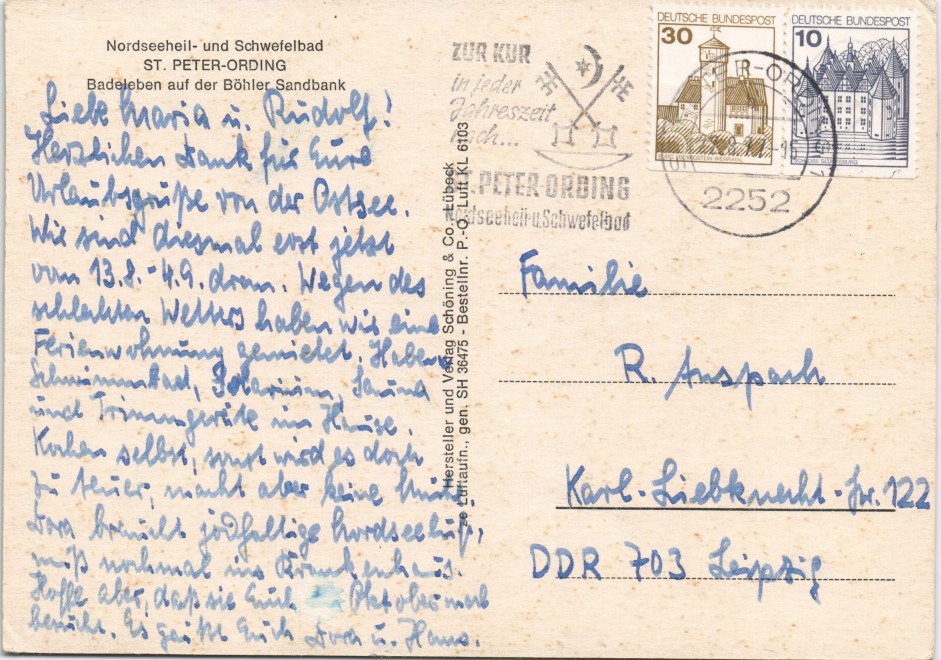 Nordseeheil- und Schwefelbad
ST. PETER-ORDING
Badeleben auf der Böhler Sandbank
Liebe Maria u. Rudolf!
Herzlichen Dank für Eure
Urlaubsgrüße von der Ostsee.
Wir sind diesmal erst jetzt
vom 13.8.-4.9. dran. Wegen des
schlechten Wetters haben wir eine
Ferienwohnung gemietet. Haben
Schwimmbad, Solarium, Sauna
und Trimmgeräte im Hause.
Kochen selbst, sonst wird es doch
zu teuer, macht aber keine
Dora braucht jodhaltige Nordseeluft,
muß nochmal ins Krankenhaus.
Hoffe aber, daß sie Euch Oktober mal
besucht. Es grüßt Euch Dora u. Hans.
Hersteller und Verlag Schöning & Co., Lübeck
Luftaufn., gen. SH 36475 - Bestellnr. P.-O. Luft KL 6103
ZUR KUR
in jeder
Jahreszeit
nach...
PETER-ORDING
Nordseeheil-u.Schwefelbad
DEUTSCHE BUNDESPOST
30
DEUTSCHE BUNDESPOST
10
SCHLOSS GLÜCKSBURG
R-ORD
2252
Familie
R. Anspach
Karl-Liebknecht-Str. 122
DDR 703 Leipzig